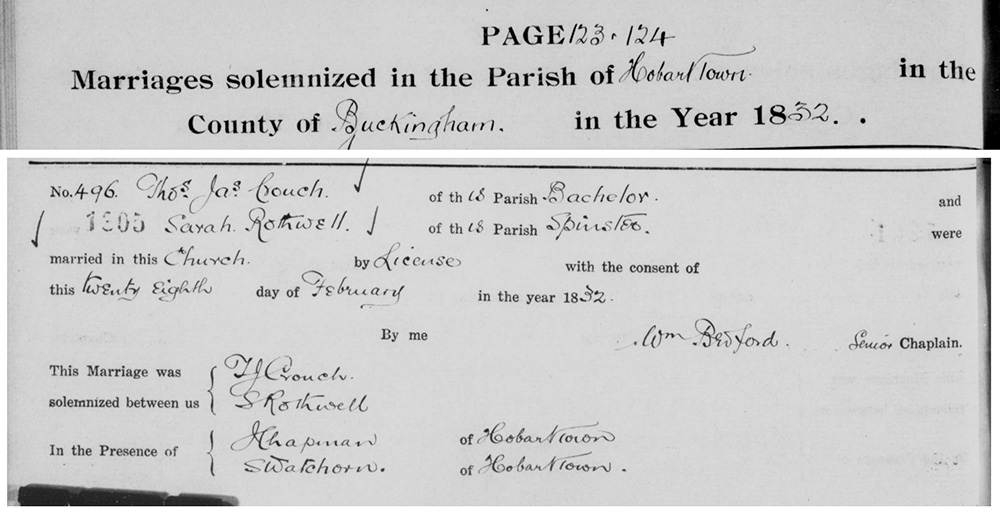 PAGE 123 · 124
Marriages solemnized in the Parish of Hobart Town. in the
County of Buckingham. in the Year 1832. .
No. 496. Thos. Jas Crouch. of this Parish Bachelor. and
1305 Sarah Rothwell. of this Parish Spinster. were
married in this Church. by License with the consent of
this twenty Eighth day of February in the year 1832.
By me Wm Bedford. Senior Chaplain.
This Marriage was { T J Crouch.
solemnized between us { S Rothwell
In the Presence of { J Chapman of Hobart Town
{ S Watchorn. of Hobart Town.